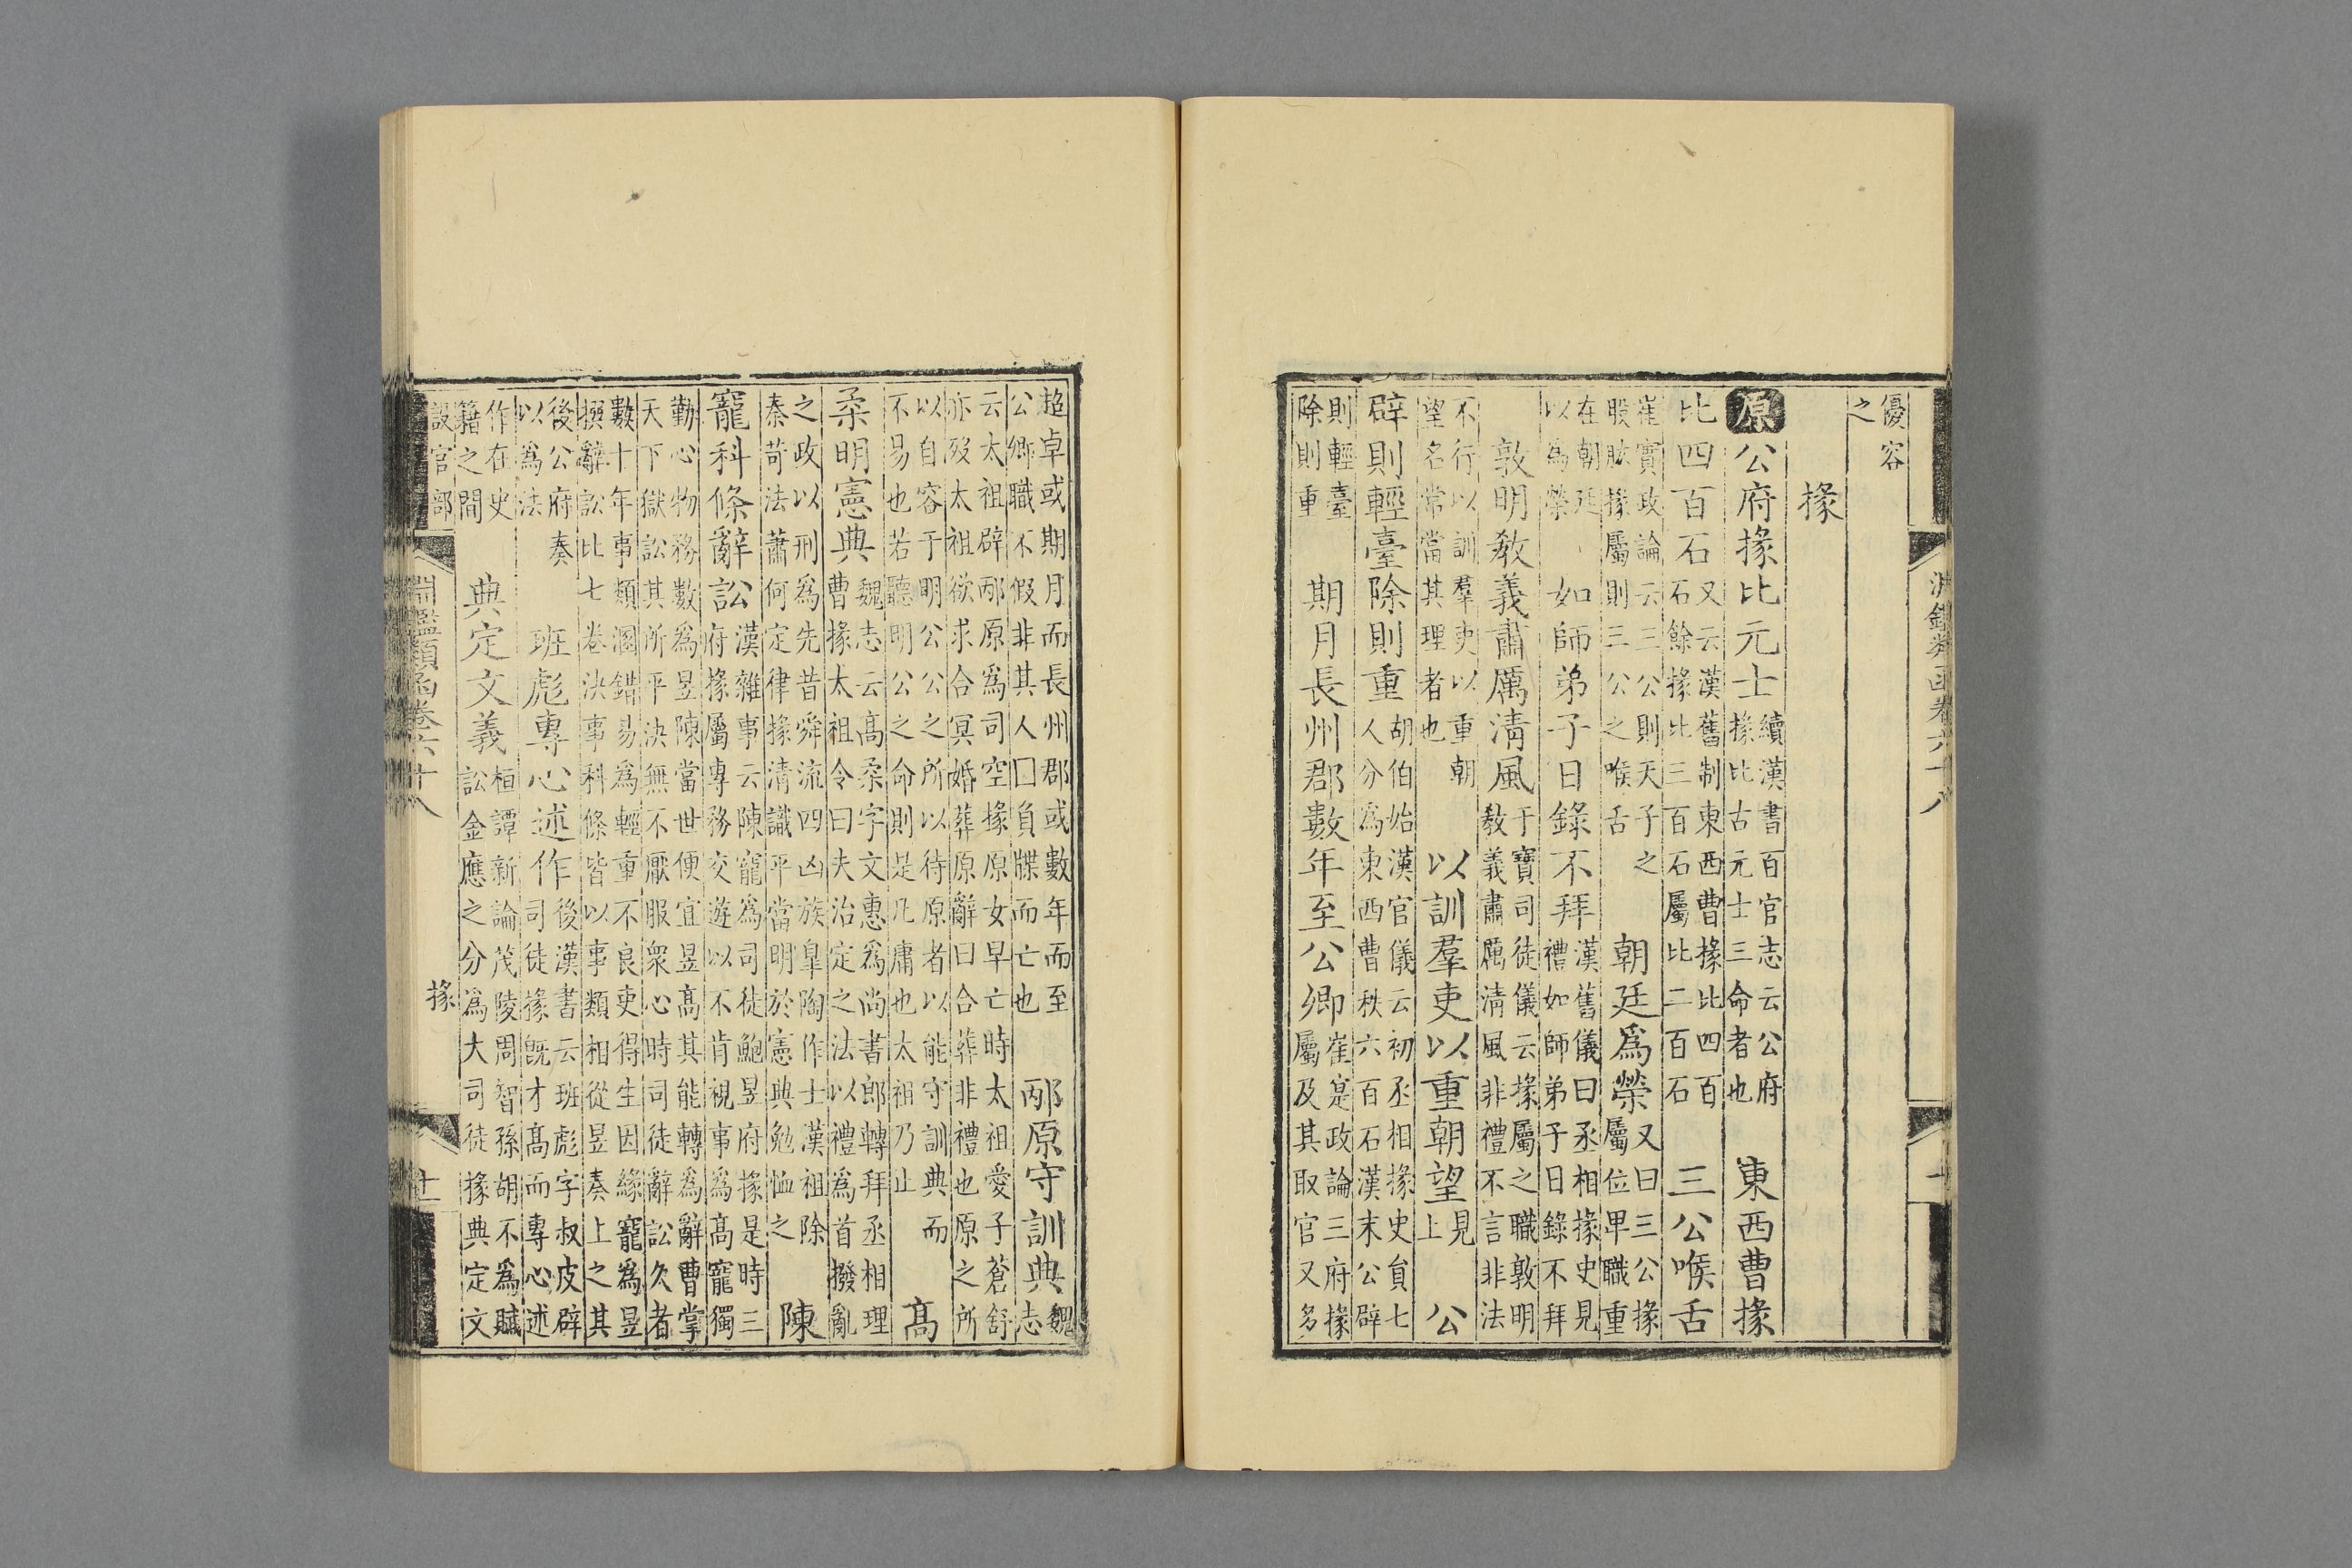 淵鑑類函卷六十八
優容之
掾
原公府掾比元士續漢書百官志云公府掾比古元士三命者也東西曹掾
比四百石又云漢舊制東西曹掾比四百石餘掾比三百石屬比二百石三公喉舌
崔實政論云三公則天子之股肱掾屬則三公之喉舌朝廷爲榮又曰三公掾屬位卑職重
在朝廷以爲榮如師弟子日錄不拜漢舊儀曰丞相掾史見禮如師弟子日錄不拜
敦明敎義肅厲淸風于寶司徒儀云掾屬之職敦明敎義肅厲淸風非禮不言非法
不行以訓羣吏以重朝望名常當其理者也以訓羣吏以重朝望見上公
辟則輕臺除則重胡伯始漢官儀云初丞相掾史員七人分爲東西曹秩六百石漢末公辟
則輕臺除則重期月長州郡數年至公卿崔寔政論三府掾屬及其取官又多
超卓或期月而長州郡或數年而至公卿職不假非其人囗負牒而亡也邴原守訓典魏志
云太祖辟邴原爲司空掾原女早亡時太祖愛子蒼舒亦歿太祖欲求合冥婚葬原辭曰合葬非禮也原之所
以自容于明公公之所以待原者以能守訓典而不易也若聽明公之命則是凡庸也太祖乃止高
柔明憲典魏志云高柔字文惠爲尚書郎轉拜丞相理曹掾太祖令曰夫治定之法以禮爲首撥亂
之政以刑爲先昔舜流四凶族皐陶作士漢祖除秦苛法蕭何定律掾清識平當明於憲典勉恤之陳
寵科條辭訟漢雜事云陳寵爲司徒鮑昱府掾是時三府掾屬專務交遊以不肯視事爲高寵獨
勤心物務數爲昱陳當世便宜昱高其能轉爲辭曹掌天下獄訟其所平決無不厭服衆心時司徒辭訟久者
數十年事類溷錯易爲輕重不良吏得生因緣寵爲昱撰辭訟比七卷決事科條皆以事類相從昱奏上之其
後公府奏以爲法班彪專心述作後漢書云班彪字叔皮辟司徒掾旣才高而專心述
作在史籍之間典定文義桓譚新論茂陵周智孫胡不爲賦訟金應之分爲大司徒掾典定文
設官部
淵鑑類函卷六十八掾十一